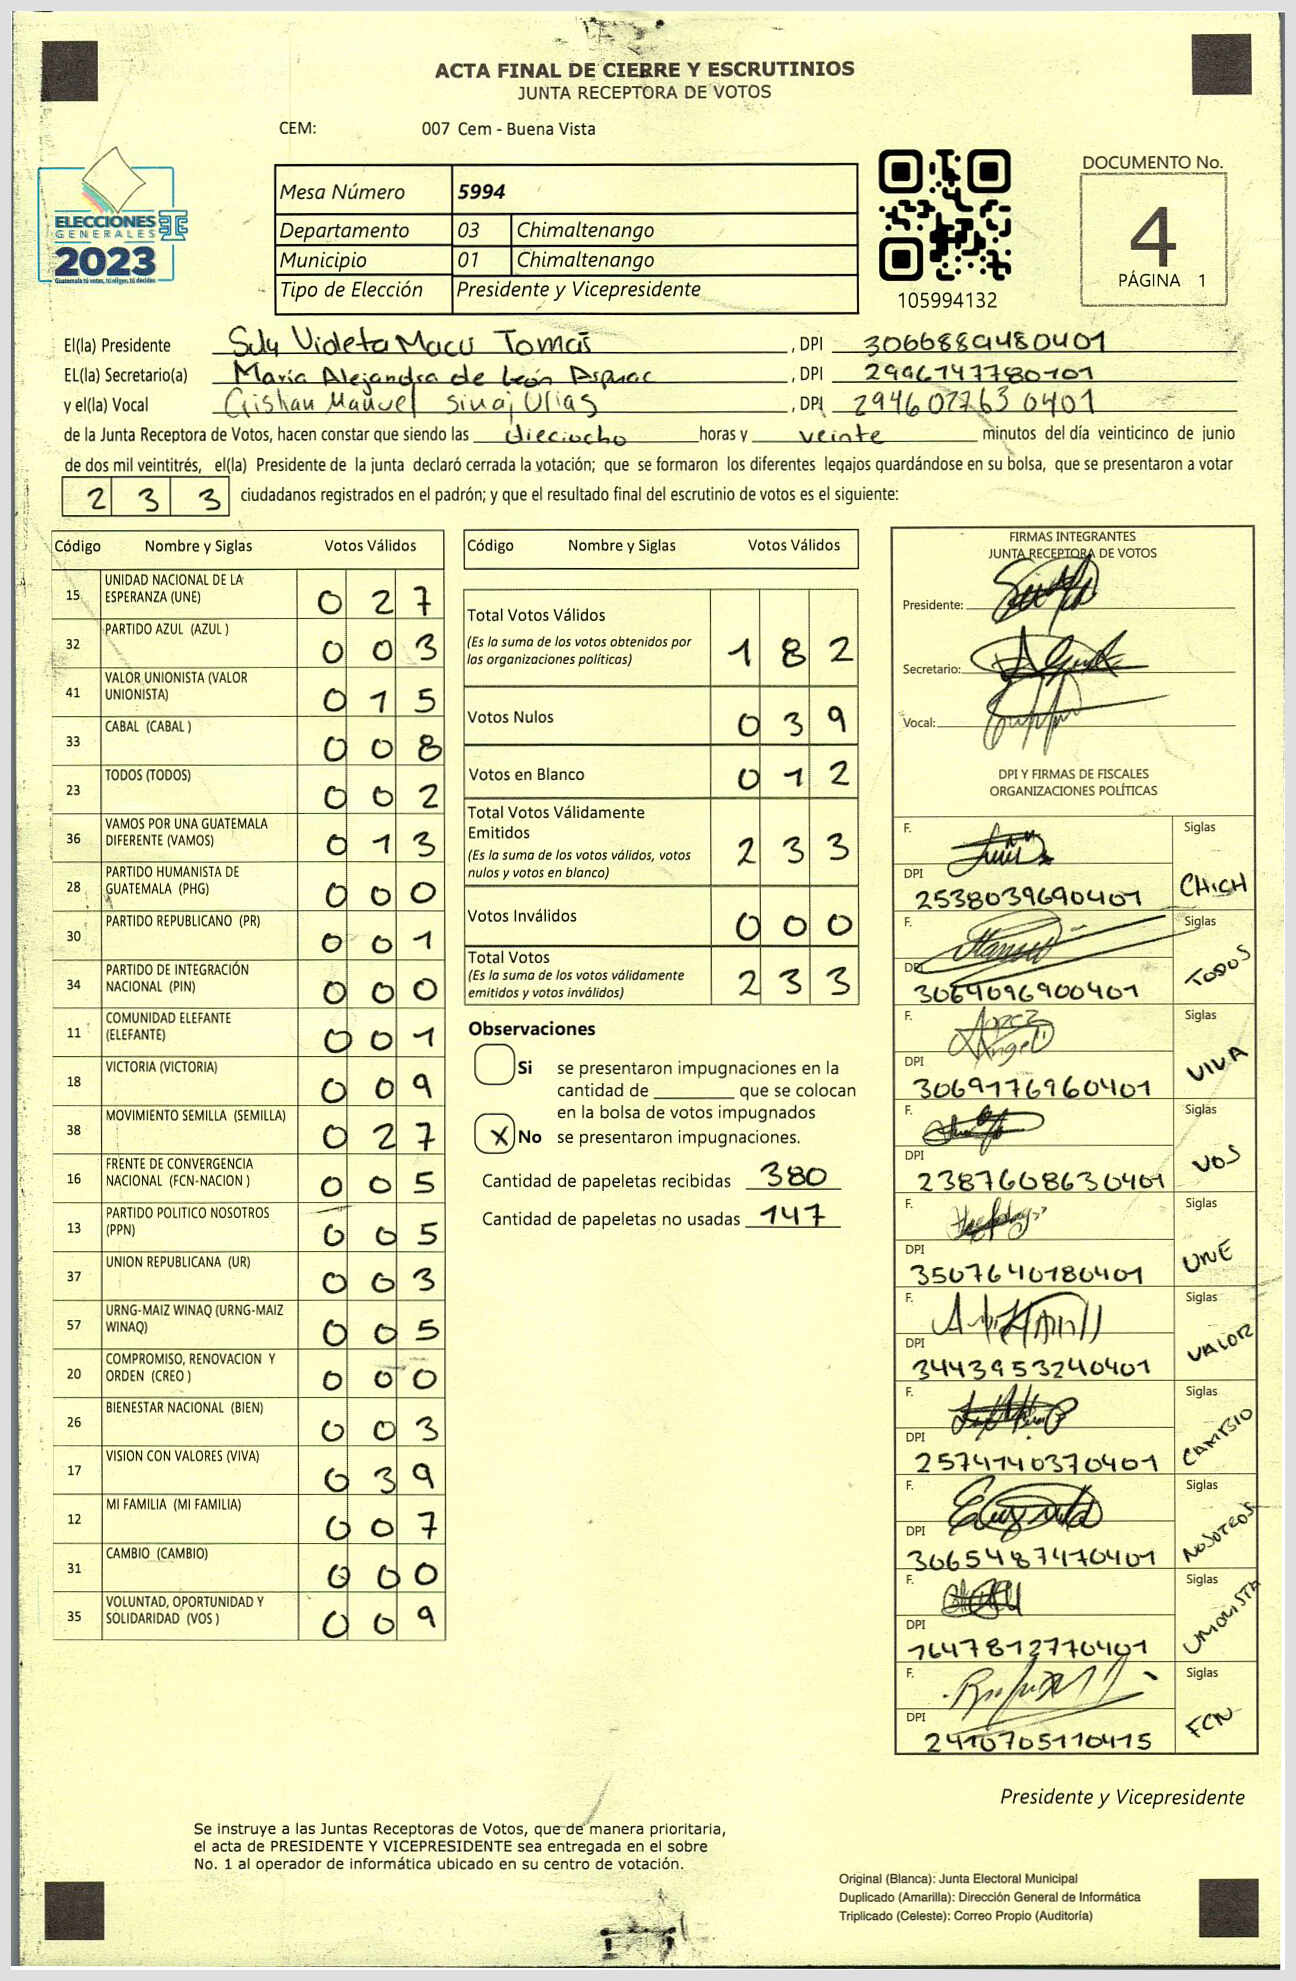 ACTA FINAL DE CIERRE Y ESCRUTINIOS
JUNTA RECEPTORA DE VOTOS
CEM: 007 Cem - Buena Vista
ELECCIONES
GENERALES
2023
Guatemala tú votas, tú eliges, tú decides
Mesa Número 5994
Departamento 03 Chimaltenango
Municipio 01 Chimaltenango
Tipo de Elección Presidente y Vicepresidente
105994132
DOCUMENTO No.
4
PÁGINA 1
El(la) Presidente Violeta Macu Tomás , DPI 3066889480401
EL(la) Secretario(a) María Alejandra de León , DPI 2996147780101
y el(la) Vocal Cristian Manuel Sinaj , DPI 2946077630401
de la Junta Receptora de Votos, hacen constar que siendo las dieciocho horas y veinte minutos del día veinticinco de junio
de dos mil veintitrés, el(la) Presidente de la junta declaró cerrada la votación; que se formaron los diferentes legajos guardándose en su bolsa, que se presentaron a votar
233 ciudadanos registrados en el padrón; y que el resultado final del escrutinio de votos es el siguiente:
Código Nombre y Siglas Votos Válidos
15 UNIDAD NACIONAL DE LA ESPERANZA (UNE) 027
32 PARTIDO AZUL (AZUL ) 003
41 VALOR UNIONISTA (VALOR UNIONISTA) 015
33 CABAL (CABAL ) 008
23 TODOS (TODOS) 002
36 VAMOS POR UNA GUATEMALA DIFERENTE (VAMOS) 013
28 PARTIDO HUMANISTA DE GUATEMALA (PHG) 000
30 PARTIDO REPUBLICANO (PR) 001
34 PARTIDO DE INTEGRACIÓN NACIONAL (PIN) 000
11 COMUNIDAD ELEFANTE (ELEFANTE) 001
18 VICTORIA (VICTORIA) 009
38 MOVIMIENTO SEMILLA (SEMILLA) 027
16 FRENTE DE CONVERGENCIA NACIONAL (FCN-NACION ) 005
13 PARTIDO POLITICO NOSOTROS (PPN) 005
37 UNION REPUBLICANA (UR) 003
57 URNG-MAIZ WINAQ (URNG-MAIZ WINAQ) 005
20 COMPROMISO, RENOVACION Y ORDEN (CREO ) 000
26 BIENESTAR NACIONAL (BIEN) 003
17 VISION CON VALORES (VIVA) 039
12 MI FAMILIA (MI FAMILIA) 007
31 CAMBIO (CAMBIO) 000
35 VOLUNTAD, OPORTUNIDAD Y SOLIDARIDAD (VOS ) 009
Código Nombre y Siglas Votos Válidos
Total Votos Válidos 182
(Es la suma de los votos obtenidos por
las organizaciones políticas)
Votos Nulos 039
Votos en Blanco 012
Total Votos Válidamente
Emitidos 233
(Es la suma de los votos válidos, votos
nulos y votos en blanco)
Votos Inválidos 000
Total Votos 233
(Es la suma de los votos válidamente
emitidos y votos inválidos)
Observaciones
Si se presentaron impugnaciones en la
cantidad de ________ que se colocan
en la bolsa de votos impugnados
X No se presentaron impugnaciones.
Cantidad de papeletas recibidas 380
Cantidad de papeletas no usadas 147
FIRMAS INTEGRANTES
JUNTA RECEPTORA DE VOTOS
Presidente:
Secretario:
Vocal:
DPI Y FIRMAS DE FISCALES
ORGANIZACIONES POLÍTICAS
F. Siglas
DPI 2538039690401 CHICH
F. Siglas
DPI 3064096900401 TODOS
F. Lopez Angel Siglas
DPI 3069176960401 VIVA
F. Siglas
DPI 2387608630401 VOS
F. Siglas
DPI 3507640180401 UNE
F. Siglas
DPI 3443953240401 VALOR
F. Siglas
DPI 2574140370401 CAMBIO
F. Siglas
DPI 3065487470401 NOSOTROS
F. Siglas
DPI 1647812770401 UNIONISTA
F. Siglas
DPI 2410705110415 FCN
Presidente y Vicepresidente
Se instruye a las Juntas Receptoras de Votos, que de manera prioritaria,
el acta de PRESIDENTE Y VICEPRESIDENTE sea entregada en el sobre
No. 1 al operador de informática ubicado en su centro de votación.
Original (Blanca): Junta Electoral Municipal
Duplicado (Amarilla): Dirección General de Informática
Triplicado (Celeste): Correo Propio (Auditoría)